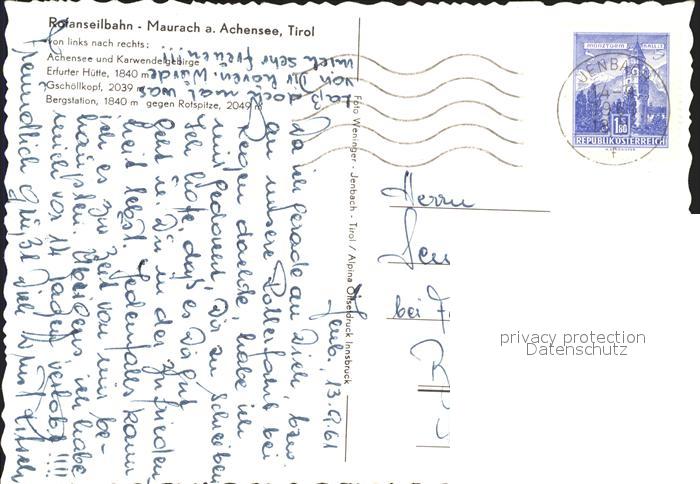 Rofanseilbahn - Maurach a. Achensee, Tirol
von links nach rechts:
Achensee und Karwendelgebirge
Erfurter Hütte, 1840 m
Gschöllkopf, 2039 m
Bergstation, 1840 m gegen Rotspitze, 2049 m
Foto Weninger - Jenbach - Tirol / Alpina Offsetdruck Innsbruck
MÜNZTURM HALL I.T.
1.80
REPUBLIK ÖSTERREICH
JENBACH
Jenb., 13.9.61
Da ich gerade an Dich, bzw.
an unsere Rollerfahrt bei
Regen dachte, habe ich
mir gedacht Dir zu schreiben
Ich hoffe, daß es Dir gut
geht u. Du in der Zufriedenheit
lebst. Jedenfalls kann
ich es zur Zeit von mir be-
haupten. Übrigens ich habe
mich vor 14 Tagen verlobt!!!!
Freundlich grüßt Dich
Laß doch mal was
von Dir hören. Würde
mich sehr freuen!!!!
Herrn
bei
privacy protection
Datenschutz